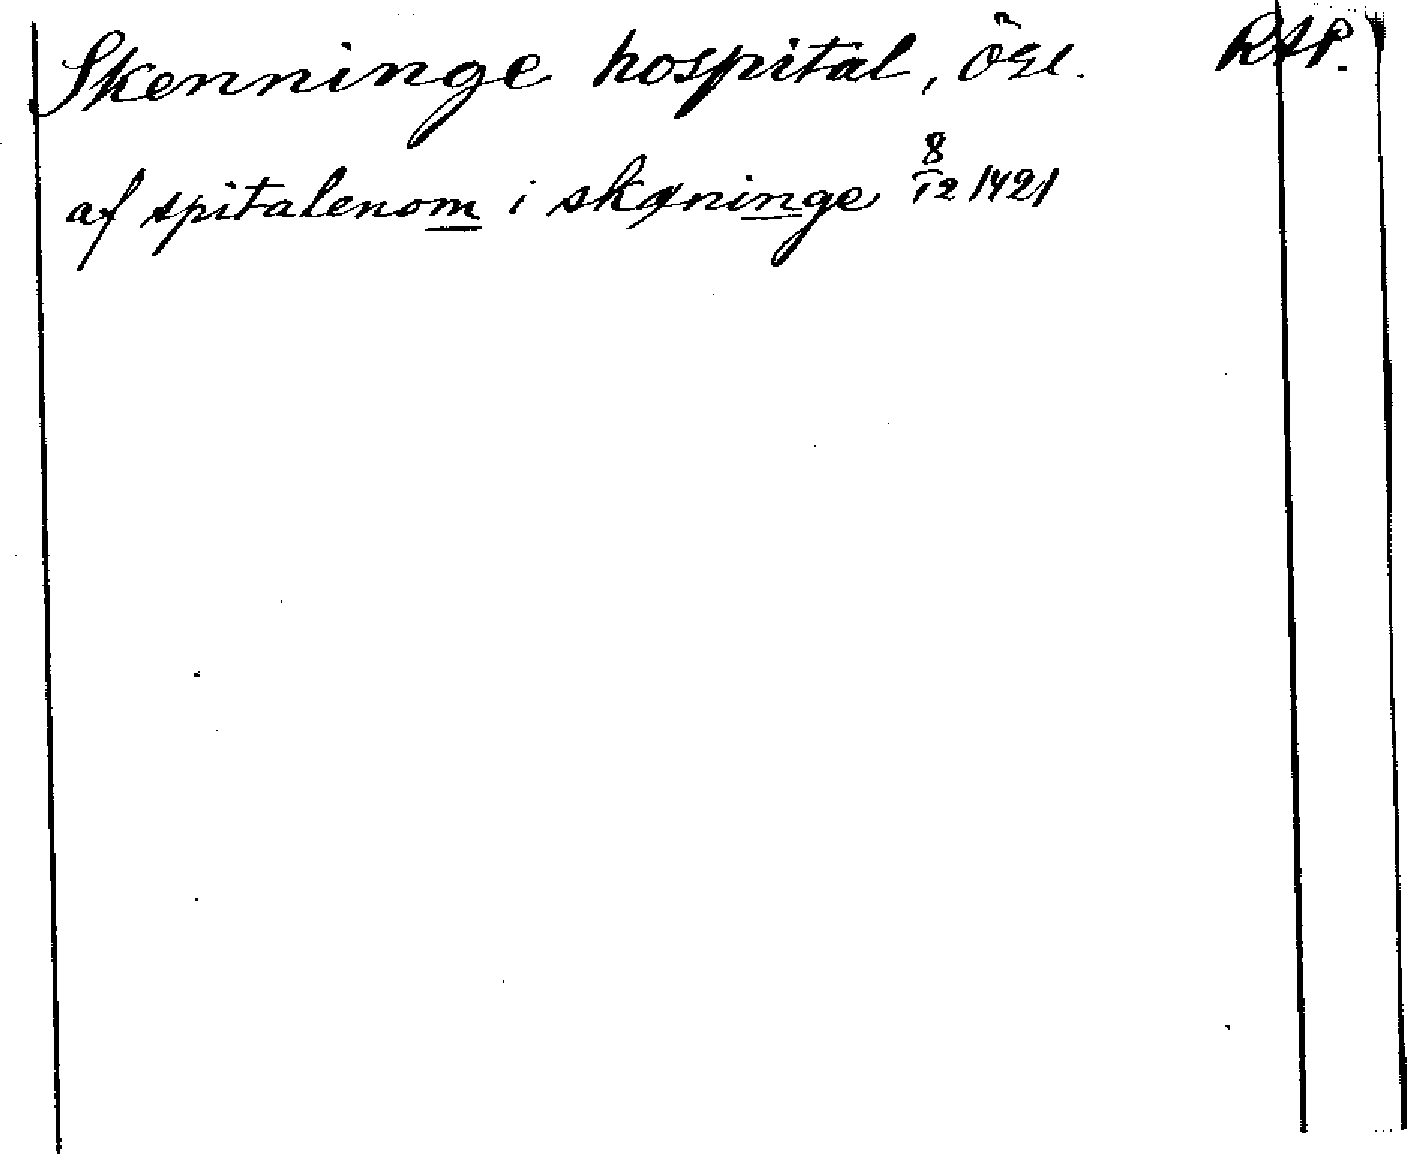 Skenninge hospital, Ögl. RAP.
af spitalenom i skæninge 8/12 1421